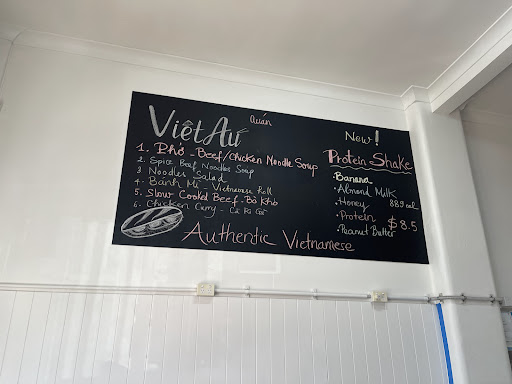 Quán
Việt Âu
1. Phở - Beef/Chicken Noodle Soup
2. Spice Beef Noodles Soup
3. Noodles Salad
4. Bánh Mì - Vietnamese Roll
5. Slow Cooked Beef - Bò Kho
6. Chicken Curry - Cà Ri Gà
Authentic Vietnamese
New!
Protein Shake
• Banana
• Almond Milk
• Honey 889 cal
• Protein $8.5
• Peanut Butter